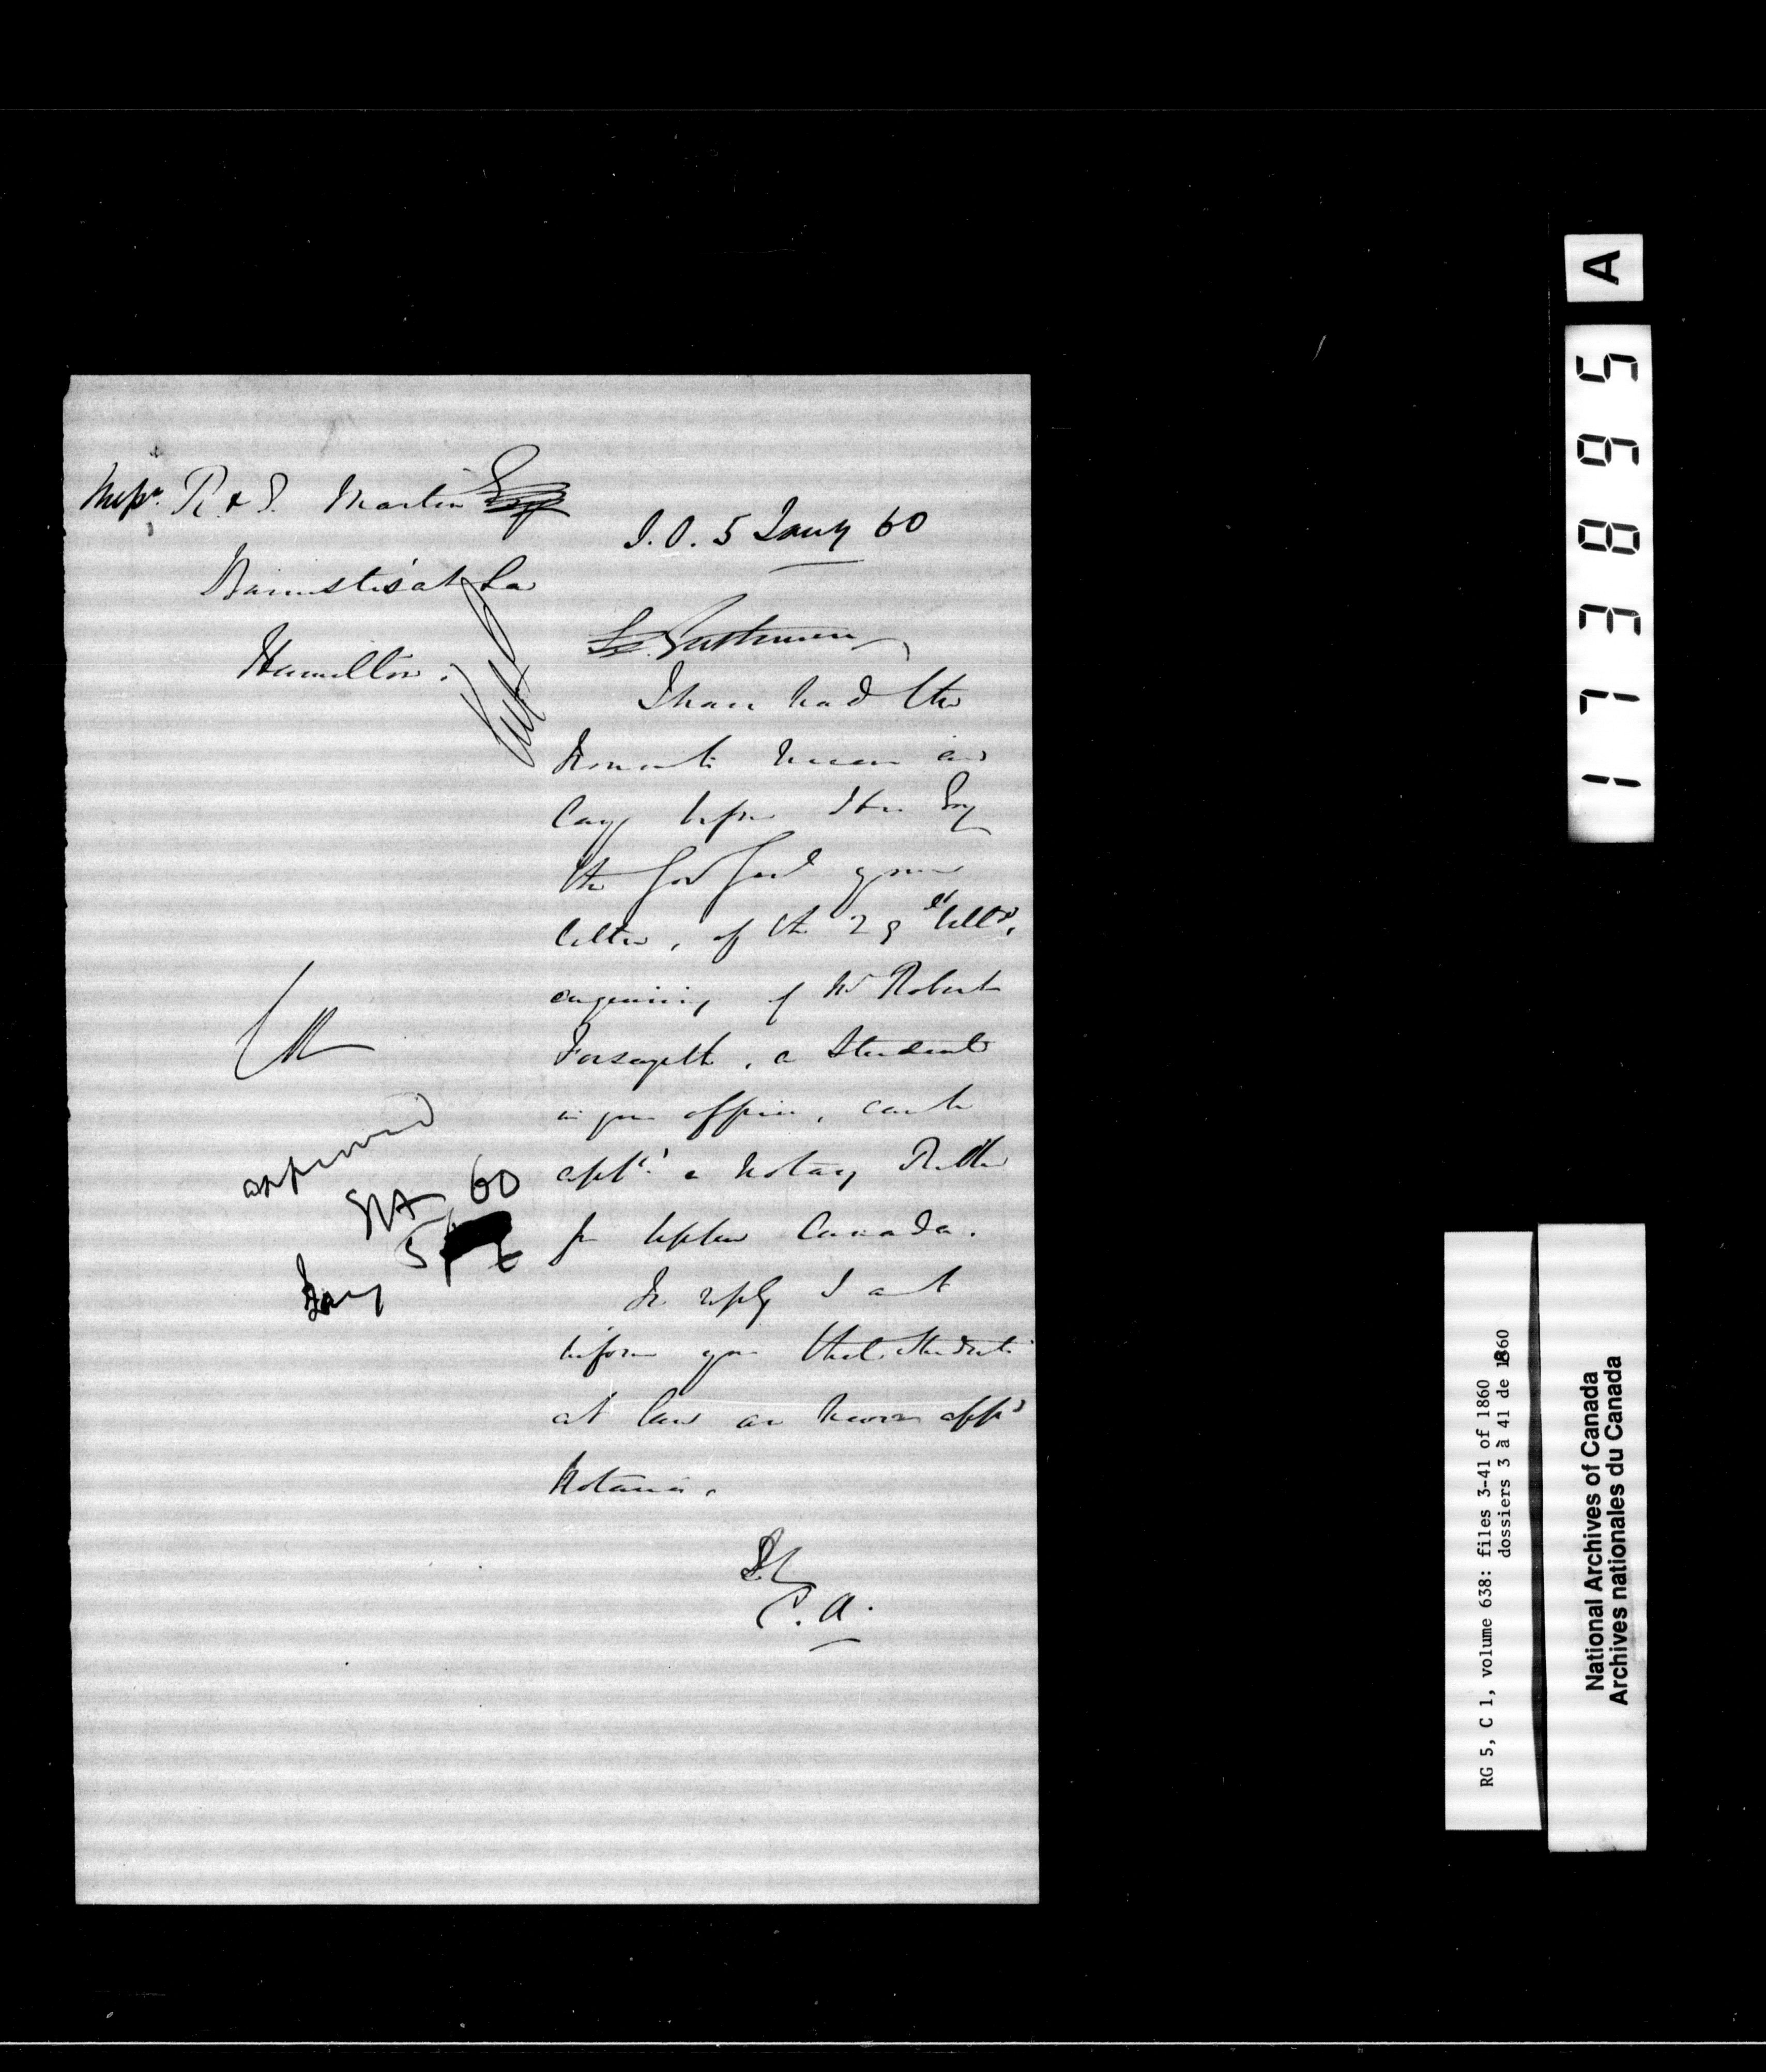 Messrs. R. & E. Martin
Barristers at Law
Hamilton.
S.O. 5 Jany 60
Gentlemen
I have had the
honor to receive and
lay before His Exy
the Gov Genl your
letter, of the 29th Ulto,
enquiring if Mr Robert
Forsyth, a Student
in your office, can be
appd a Notary Public
for Upper Canada.
In reply I am to
inform you that Students
at law are never appd
Notaries.
C. A.
approved
60
5
Jany
A
173895
RG 5, C 1, volume 638: files 3-41 of 1860
dossiers 3 à 41 de 1860
National Archives of Canada
Archives nationales du Canada